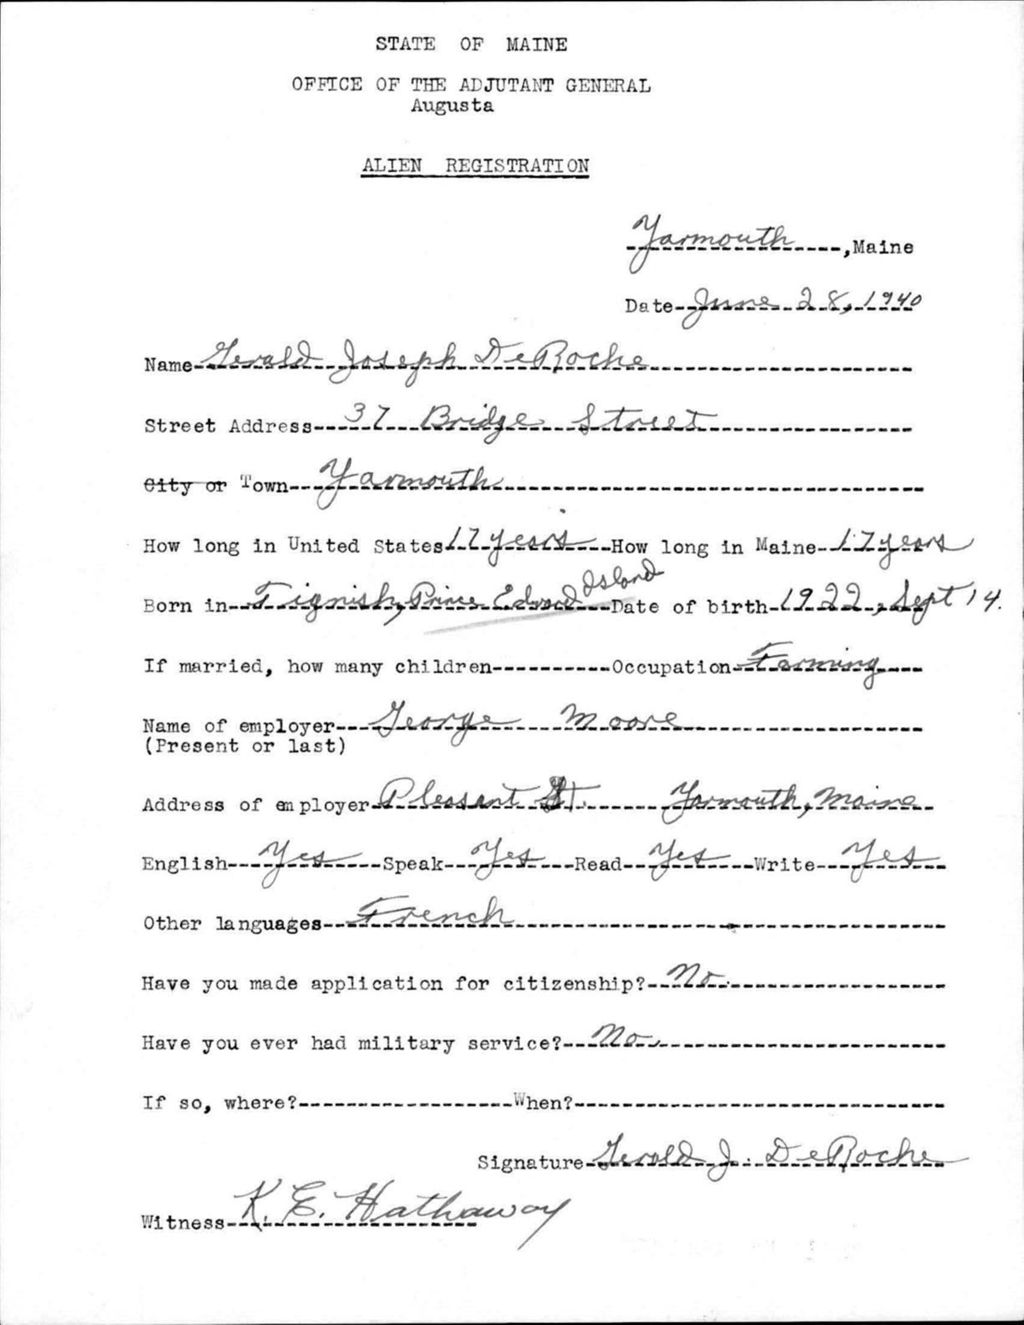 STATE OF MAINE
OFFICE OF THE ADJUTANT GENERAL
Augusta
ALIEN REGISTRATION
Yarmouth, Maine
Date June 28, 1940
Name Gerald Joseph DeRoche
Street Address 37 Bridge Street
City or Town Yarmouth
How long in United States 17 years How long in Maine 17 years
Born in Tignish, Prince Edward Island Date of birth 1922, Sept 14.
If married, how many children Occupation Farming
Name of employer George Moore
(Present or last)
Address of employer Pleasant St. Yarmouth, Maine
English Yes Speak Yes Read Yes Write Yes
Other languages French
Have you made application for citizenship? No.
Have you ever had military service? No.
If so, where? When?
Signature Gerald J. DeRoche
Witness K. E. Hathaway